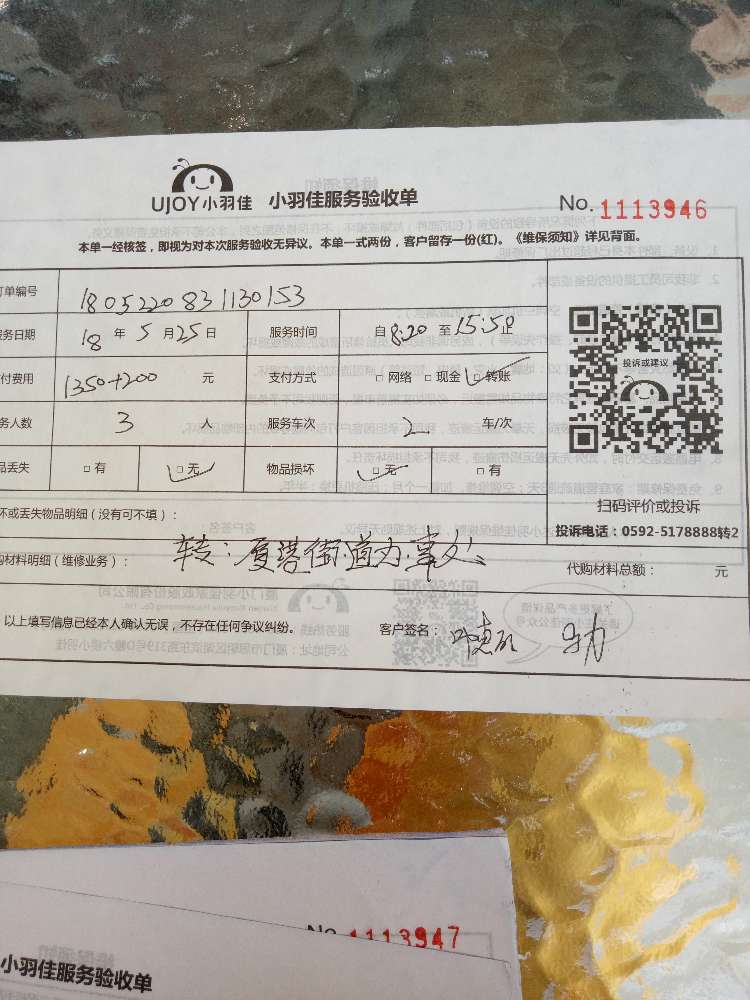 UJOY小羽佳 小羽佳服务验收单 No. 1113946
本单一经核签，即视为对本次服务验收无异议。本单一式两份，客户留存一份(红)。《维保须知》详见背面。
订单编号 1805220831130153
服务日期 18 年 5 月 25 日 服务时间 自 8:20 至 15:5 止
付费用 1350+200 元 支付方式 □ 网络 □ 现金 □ 转账
务人数 3 人 服务车次 2 车/次
品丢失 □ 有 □ 无 物品损坏 □ 无 □ 有
投诉或建议
扫码评价或投诉
投诉电话：0592-5178888转2
坏或丢失物品明细（没有可不填）：
购材料明细（维修业务）： 街道办事处 代购材料总额： 元
以上填写信息已经本人确认无误，不存在任何争议纠纷。 客户签名：
No. 1113947
小羽佳服务验收单